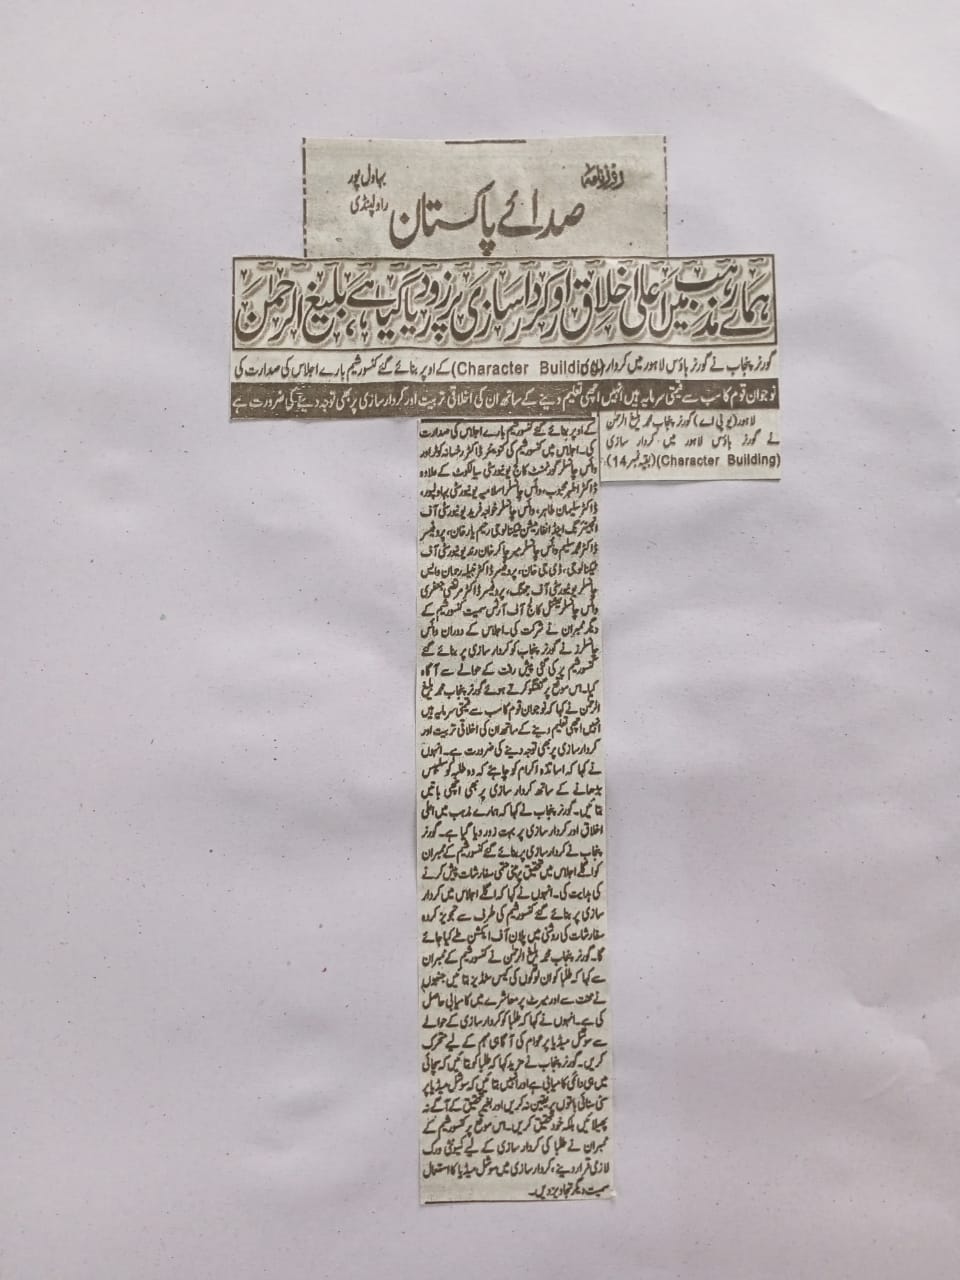 روزنامہ
صدائے پاکستان
بہاول پور
راولپنڈی
ہمارے مذہب میں اعلیٰ اخلاق اور کردار سازی پر زور دیا گیا ہے، بلیغ الرحمٰن
گورنر پنجاب نے گورنر ہاؤس لاہور میں کردار سازی (Character Building) کے اوپر بنائے گئے کنسورشیم بارے اجلاس کی صدارت کی
نوجوان قوم کا سب سے قیمتی سرمایہ ہیں انہیں اچھی تعلیم دینے کے ساتھ ان کی اخلاقی تربیت اور کردار سازی پر بھی توجہ دینے کی ضرورت ہے
لاہور (یو پی اے) گورنر پنجاب محمد بلیغ الرحمن
نے گورنر ہاؤس لاہور میں کردار سازی
(Character Building) (بقیہ نمبر 14)
کے اوپر بنائے گئے کنسورشیم بارے اجلاس کی صدارت
کی۔ اجلاس میں کنسورشیم کی کنوینئر ڈاکٹر رخسانہ کوثر اور
وائس چانسلر گورنمنٹ کالج یونیورسٹی سیالکوٹ کے علاوہ
ڈاکٹر اطہر محبوب، وائس چانسلر اسلامیہ یونیورسٹی بہاولپور،
ڈاکٹر سلیمان طاہر، وائس چانسلر خواجہ فرید یونیورسٹی آف
انجینئرنگ اینڈ انفارمیشن ٹیکنالوجی رحیم یار خان، پروفیسر
ڈاکٹر محمد سلیم وائس چانسلر میر چاکر خان رند یونیورسٹی آف
ٹیکنالوجی، ڈی جی خان، پروفیسر ڈاکٹر نبیلہ رحمان وایس
چانسلر یونیورسٹی آف جھنگ، پروفیسر ڈاکٹر مرتضیٰ جعفری
وائس چانسلر نیشنل کالج آف آرٹس سمیت کنسورشیم کے
دیگر ممبران نے شرکت کی۔ اجلاس کے دوران وائس
چانسلرز نے گورنر پنجاب کو کردار سازی پر بنائے گئے
کنسورشیم پر کی گئی پیش رفت کے حوالے سے آگاہ
کیا۔ اس موقع پر گفتگو کرتے ہوئے گورنر پنجاب محمد بلیغ
الرحمن نے کہا کہ نوجوان قوم کا سب سے قیمتی سرمایہ ہیں
انہیں اچھی تعلیم دینے کے ساتھ ان کی اخلاقی تربیت اور
کردار سازی پر بھی توجہ دینے کی ضرورت ہے۔ انہوں
نے کہا کہ اساتذہ اکرام کو چاہئے کہ وہ طلبہ کو سلیبس
پڑھانے کے ساتھ کردار سازی پر بھی اچھی باتیں
بتائیں۔ گورنر پنجاب نے کہا کہ ہمارے مذہب میں اعلی
اخلاق اور کردار سازی پر بہت زور دیا گیا ہے۔ گورنر
پنجاب نے کردار سازی پر بنائے گئے کنسورشیم کے ممبران
کو اگلے اجلاس میں تحقیق پر مبنی حتمی سفارشات پیش کرنے
کی ہدایت کی۔ انہوں نے کہا کہ اگلے اجلاس میں کردار
سازی پر بنائے گئے کنسورشیم کی طرف سے تجویز کردہ
سفارشات کی روشنی میں پلان آف ایکشن طے کیا جائے
گا۔ گورنر پنجاب محمد بلیغ الرحمن نے کنسورشیم کے ممبران
سے کہا کہ طلبا کو ان لوگوں کی کیس سٹڈیز بتائیں جنہوں
نے محنت سے اور میرٹ پر معاشرے میں کامیابی حاصل
کی ہے۔ انہوں نے کہا کہ طلبا کو کردار سازی کے حوالے
سے سوشل میڈیا پر عوام کی آگاہی مہم کے لیے متحرک
کریں۔ گورنر پنجاب نے مزید کہا کہ طلبا کو بتائیں کہ سچائی
میں ہی دائمی کامیابی ہے اور انہیں بتائیں کہ سوشل میڈیا پر
سنی سنائی باتوں پر یقین نہ کریں اور بغیر تحقیق کے آگے نہ
پھیلائیں بلکہ خود تحقیق کریں۔ اس موقع پر کنسورشیم کے
ممبران نے طلبا کی کردار سازی کے لیے کمیونٹی ورک
لازمی قرار دینے، کردار سازی میں سوشل میڈیا کا استعمال
سمیت دیگر تجاویز دیں۔